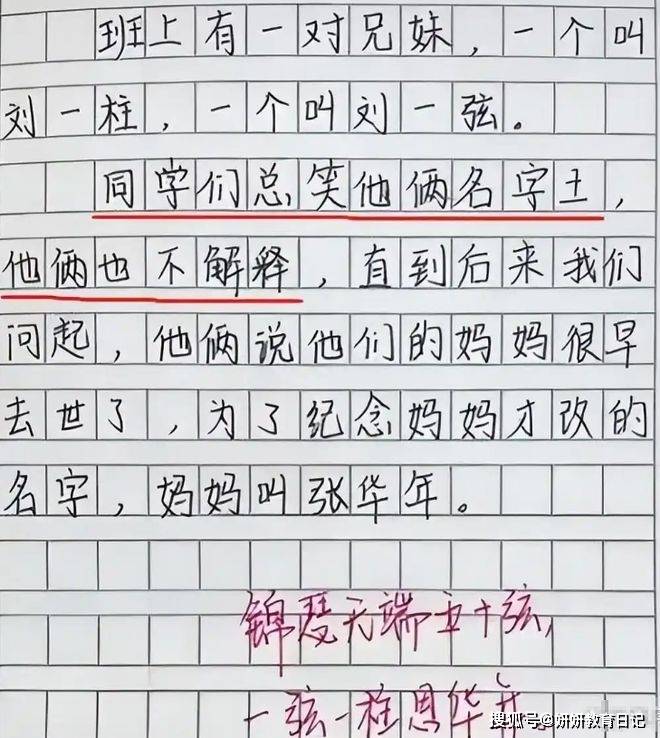 班上有一对兄妹，一个叫
刘一柱，一个叫刘一弦。
同学们总笑他俩名字土，
他俩也不解释，直到后来我们
问起，他俩说他们的妈妈很早
去世了，为了纪念妈妈才改的
名字，妈妈叫张华年。
锦瑟无端五十弦，
一弦一柱思华年
搜狐号@妍妍教育日记